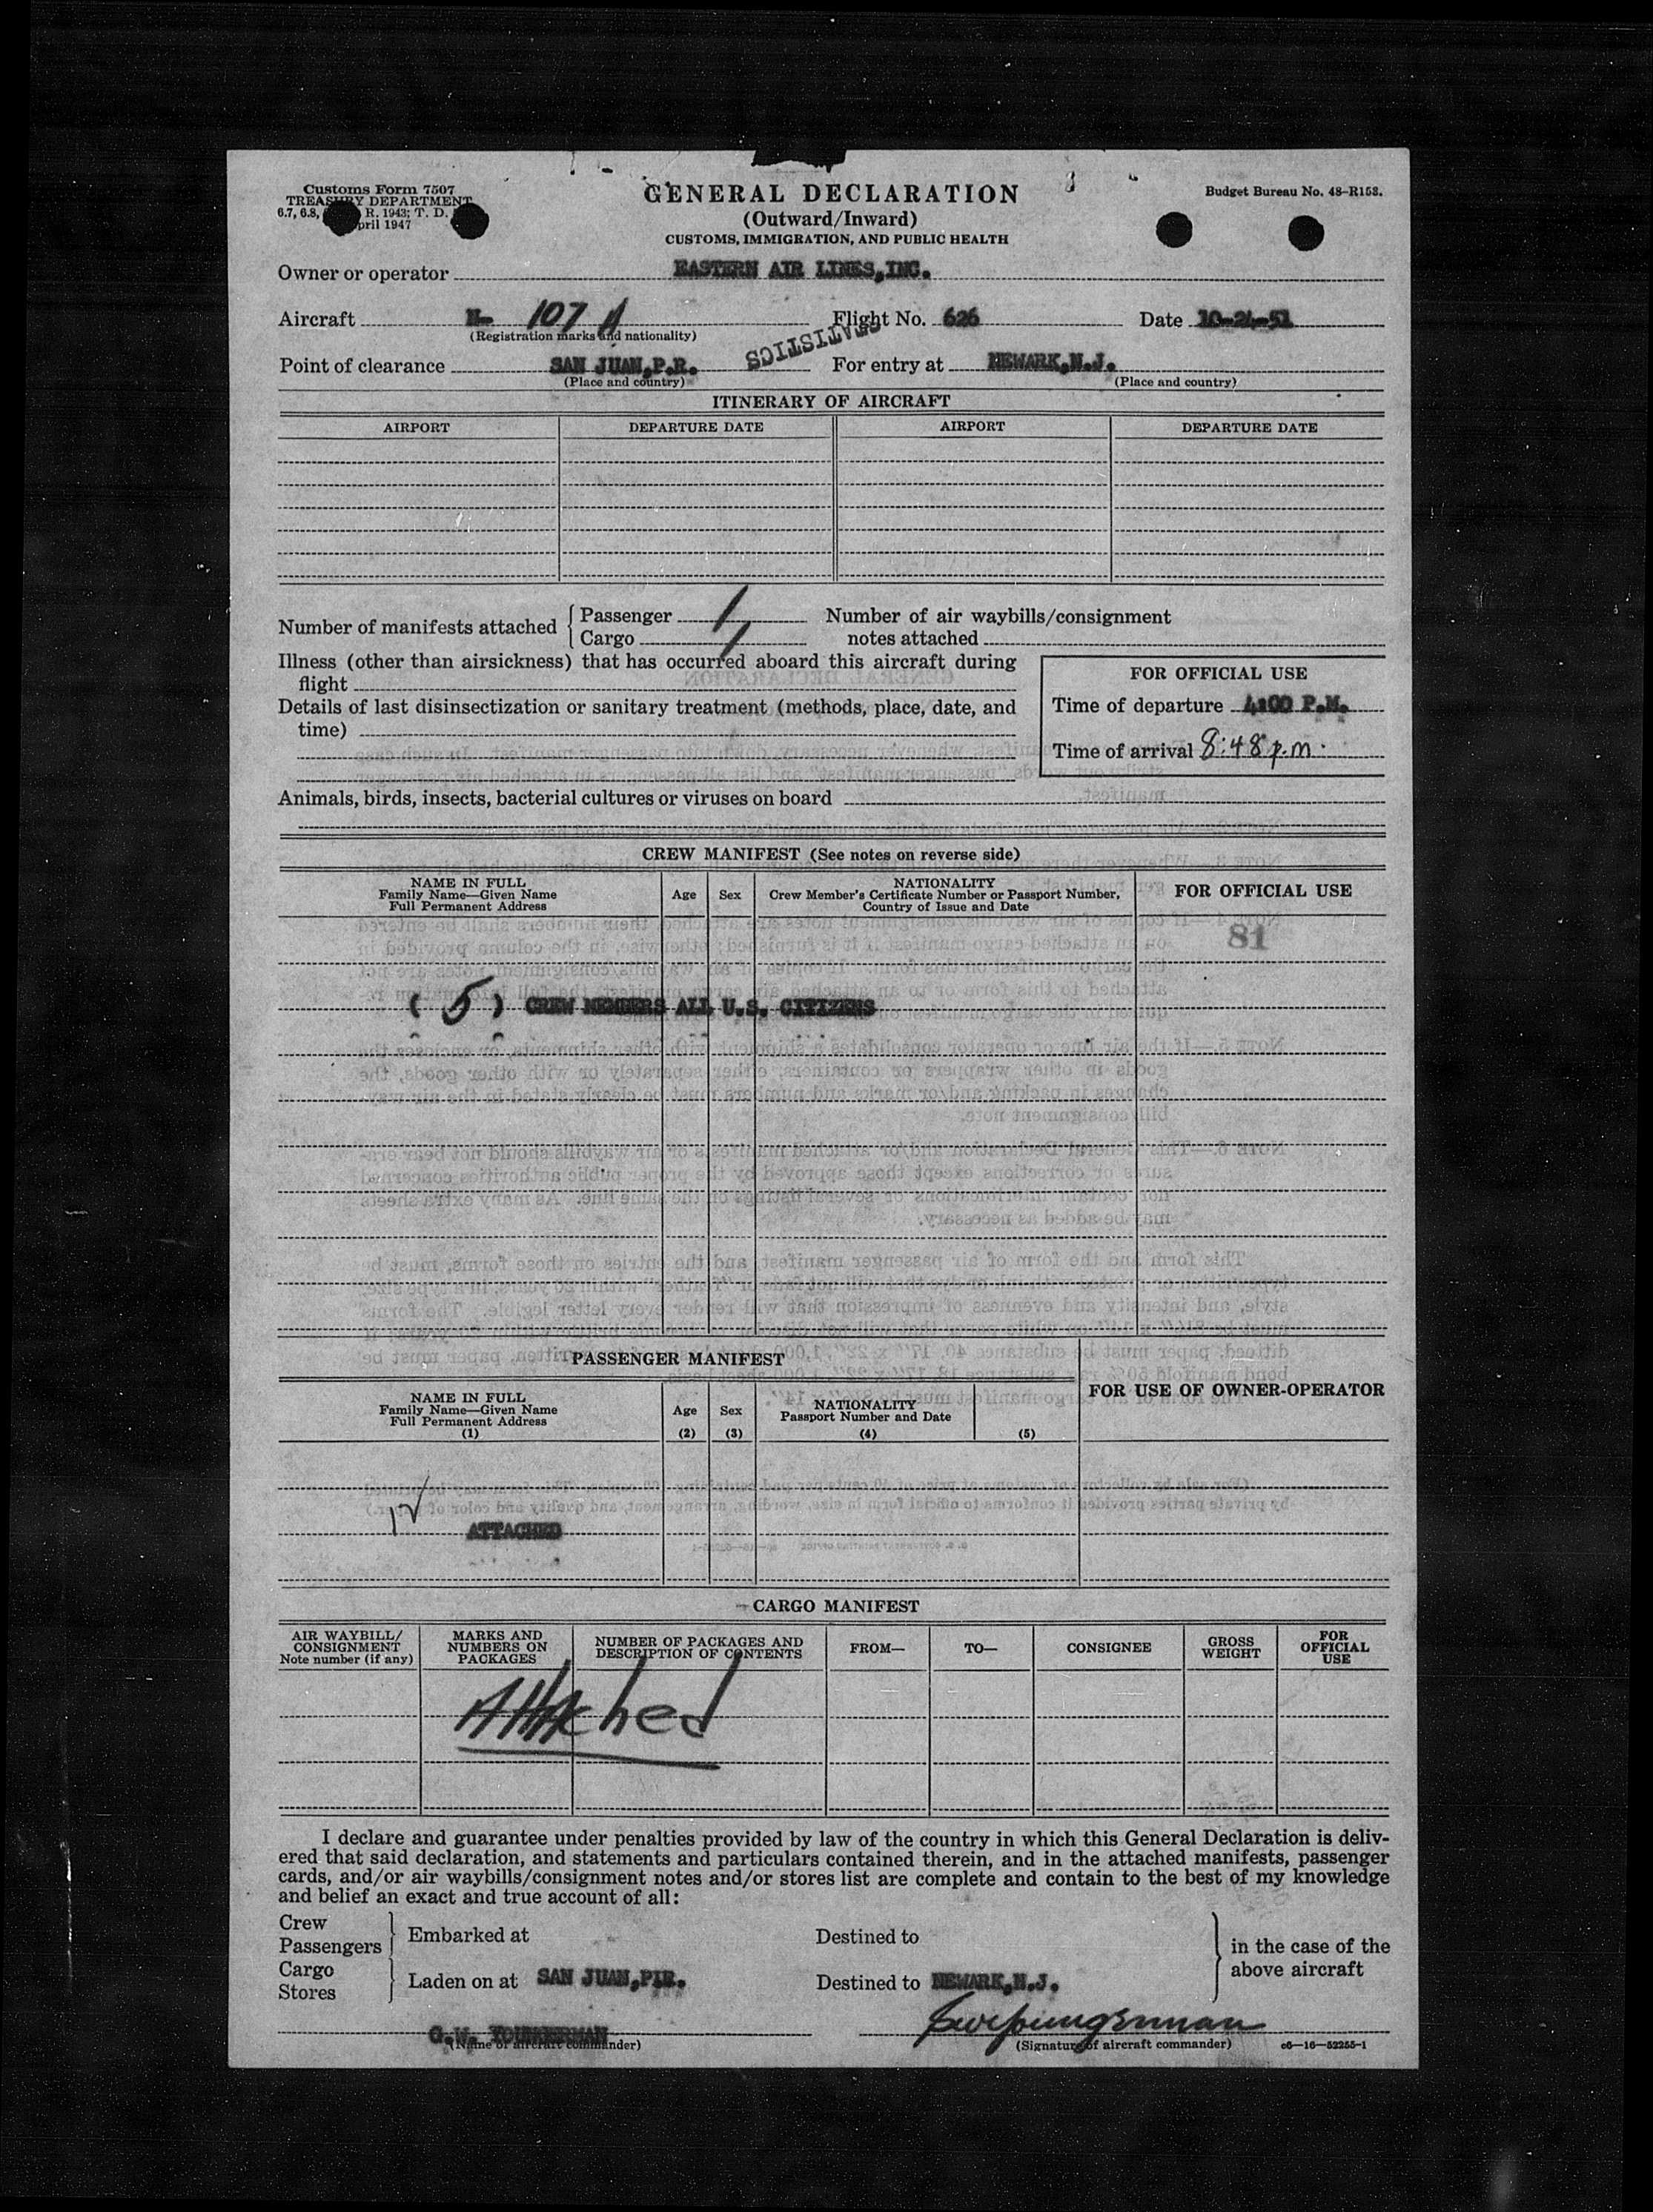 Customs Form 7507
TREASURY DEPARTMENT
6.7, 6.8, R. 1943; T. D.
pril 1947
GENERAL DECLARATION
(Outward/Inward)
CUSTOMS, IMMIGRATION, AND PUBLIC HEALTH
Budget Bureau No. 48-R153.
Owner or operator EASTERN AIR LINES,INC.
Aircraft N- 107 A Flight No. 626 Date 10-24-51
(Registration marks and nationality)
STATISTICS
Point of clearance SAN JUAN,P.R. For entry at NEWARK,N.J.
(Place and country) (Place and country)
ITINERARY OF AIRCRAFT
AIRPORT DEPARTURE DATE AIRPORT DEPARTURE DATE
Number of manifests attached { Passenger 1 Number of air waybills/consignment
Cargo 1 notes attached
Illness (other than airsickness) that has occurred aboard this aircraft during
flight
Details of last disinsectization or sanitary treatment (methods, place, date, and
time)
FOR OFFICIAL USE
Time of departure 4:00 P.M.
Time of arrival 8:48 p.m.
Animals, birds, insects, bacterial cultures or viruses on board
CREW MANIFEST (See notes on reverse side)
NAME IN FULL
Family Name—Given Name
Full Permanent Address
Age
Sex
NATIONALITY
Crew Member's Certificate Number or Passport Number,
Country of Issue and Date
FOR OFFICIAL USE
81
( 5 ) CREW MEMBERS ALL U.S. CITIZENS
PASSENGER MANIFEST
NAME IN FULL
Family Name—Given Name
Full Permanent Address
(1)
Age
(2)
Sex
(3)
NATIONALITY
Passport Number and Date
(4)
(5)
FOR USE OF OWNER-OPERATOR
ATTACHED
CARGO MANIFEST
AIR WAYBILL/
CONSIGNMENT
Note number (if any)
MARKS AND
NUMBERS ON
PACKAGES
NUMBER OF PACKAGES AND
DESCRIPTION OF CONTENTS
FROM—
TO—
CONSIGNEE
GROSS
WEIGHT
FOR
OFFICIAL
USE
Attached
I declare and guarantee under penalties provided by law of the country in which this General Declaration is deliv-
ered that said declaration, and statements and particulars contained therein, and in the attached manifests, passenger
cards, and/or air waybills/consignment notes and/or stores list are complete and contain to the best of my knowledge
and belief an exact and true account of all:
Crew
Passengers } Embarked at Destined to
Cargo
Stores } Laden on at SAN JUAN,P.R. Destined to NEWARK,N.J.
in the case of the
above aircraft
G.W. YOUNGERMAN
(Name of aircraft commander)
(Signature of aircraft commander)
c6—16—52255-1